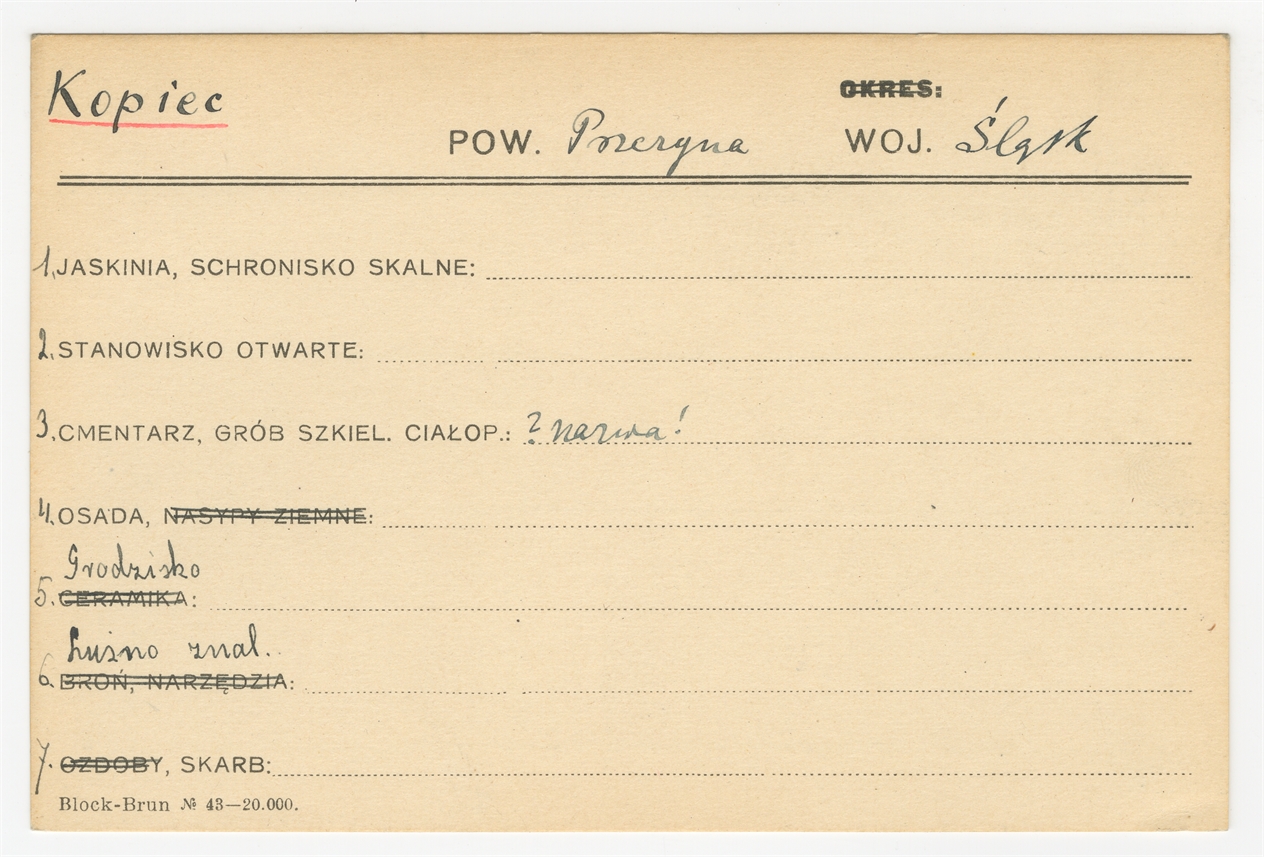 Kopiec
OKRES:
POW. Pszczyna WOJ. Śląsk
1. JASKINIA, SCHRONISKO SKALNE:
2. STANOWISKO OTWARTE:
3. CMENTARZ, GRÓB SZKIEL. CIAŁOP.: ? nazwa!
4. OSADA, NASYPY ZIEMNE:
Grodzisko
5. CERAMIKA:
Luźno znal.
6. BROŃ, NARZĘDZIA:
7. OZDOBY, SKARB:
Block-Brun № 43—20.000.